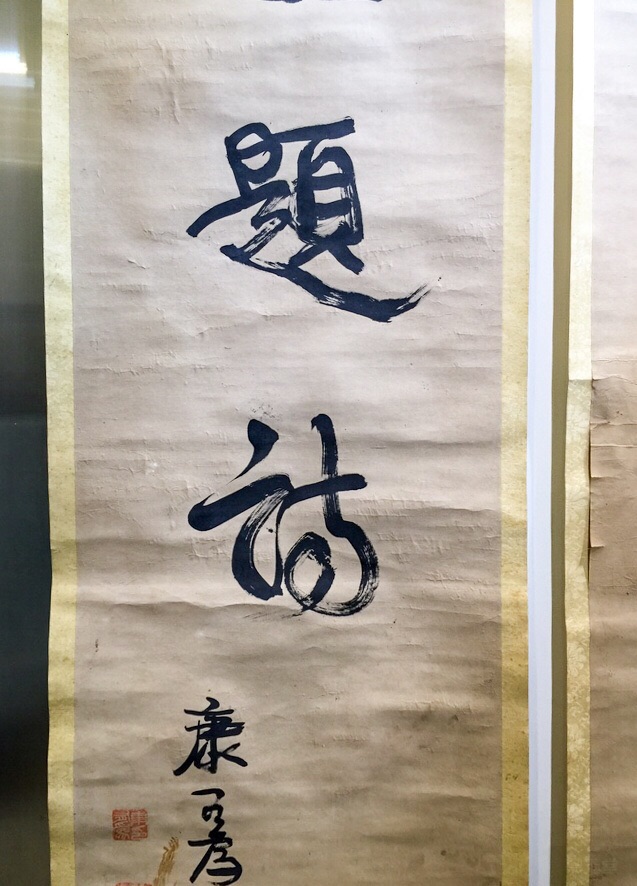 題詩
康有為